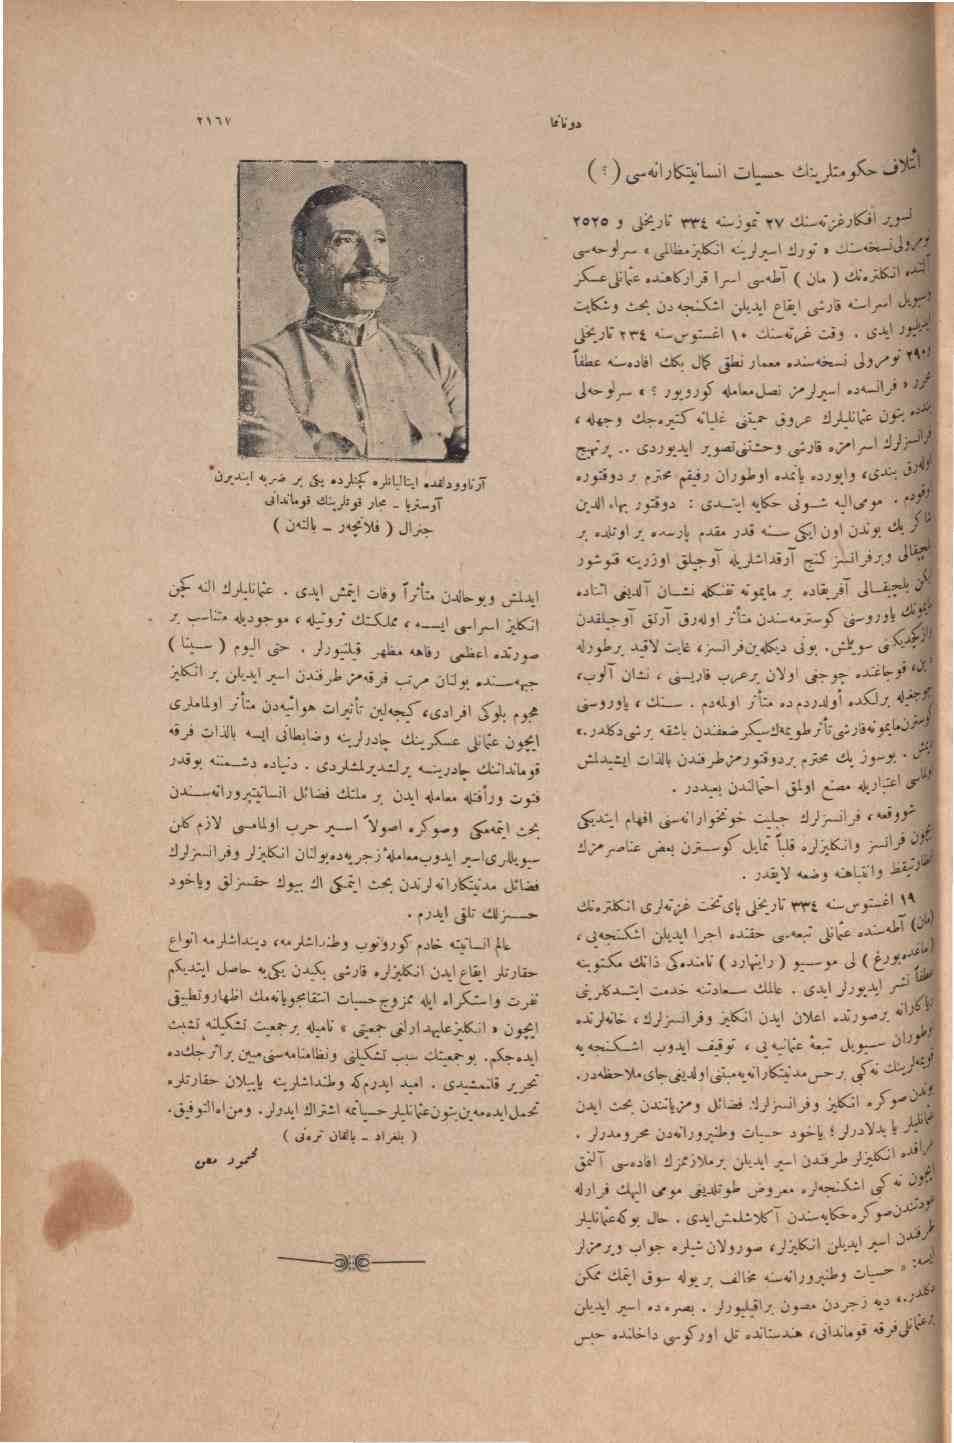 دوناما
٢١٦٧
ائتلاف حكومتلرينك حسيات انسانيتكارانه‌سی (؟)
تصوير افكار غزته‌سنك ٢٧ تموز سنه ٣٣٤ تاريخلی و ٢٥٢٥
نومرولی نسخه‌سنك « تورك اسيرلرينه انكليز مظالمی » سرلوحه‌سی
آلتنده انكلتره‌نك ( مان ) آطه‌سی اسرا قراركاهنده عثمانلی عسكر
وسيويل اسراسنه قارشی ايقاع ايديلن اشكنجه‌دن بحث وشكايت
ايديليور ايدی . وقت غزته‌سنك ١٠ اغستوس سنه ٢٣٤ تاريخلی
٢٩٠ نومرولی نسخه‌سنده معمار نطقی كمال بكك افاده‌سنه عطفاً
محرر « فرانسه‌ده اسيرلرمز نصل معامله كورويور ؟ » سرلوحه‌لی
بندده بتون عثمانليلرك عروق حميتنی غليانه كتيره‌جك وجهله ،
فرانسزلرك اسرامزه قارشی وحشتنی تصوير ايديوردی .. پر تهيج
اوله‌رق بندی، واپورده يانمده اوطوران رفيقم محترم بر دوقتوره
اوقودم . مومی‌اليه شونی حكايه ايتدی : دوقتور بهاء الدين
شاكر بك بوندن اون ايكی سنه قدر مقدم پارسده بر اوتلده بر
بلچيقالی وبر فرانسز كنج آرقداشلريله آوجيلق اوزرينه قونوشور
ايكن بلچيقالی آفريقاده بر مايمونه تفنكله نشان آلديغی اثناده
مايمونك ياوروسنی كوسترمه‌سندن متأثر اوله‌رق آرتق آوجيلقدن
وازكچديكنی سويلمش. بونی ديكله‌ين فرانسز، غايت لاقيد بر طورله
« بن، قوجاغنده چوجغی اولان بر عرب قاريسنی ، نشان آلوب،
چوجغيله برلكده أولدردم ده متأثر اولمه‌دم . سنك ، ياوروسنی
كوسترن مايمونه قارشی تأثر طويمه‌ك سيكر ضعفندن باشقه برشی دكلدر.»
ديمش . بوسوز پك محترم بر دوقتورمز طرفندن بالذات ايشيدلمش
اولماسی اعتباريله مصنع اولمق احتمالندن بعيددر .
شو وقعه ، فرانسزلرك جبليت خونخوارانه‌سنی افهام ايتديكی
ايچون فرانسز وانكليزلره قلباً تمايل كوسترن بعض عناصرمزك
انظار تيقظ وانتباهنه وضعه لايقدر .
١٩ اغستوس سنه ٣٣٤ تاريخلی پای‌تخت غزته‌لری انكلتره‌نك
(مان) آطه‌سنده عثمانلی تبعه‌سی حقنده اجرا ايديلن اشكنجه‌يی ،
(ماغده‌بورغ) لی موسيو ( راينهارد ) نامنده‌كی ذاتك مكتوبنه
عطفاً نشر ايديورلر ايدی . عالمك سعادتنه خدمت ايتدكلرينی
رياكارانه بر صورتده اعلان ايدن انكليز وفرانسزلرك ، خانه‌لرنده
اوطوران سيويل تبعهٔ عثمانيه‌يی ، توقيف ايدوب اشكنجه‌يه
قويمه‌لرينك نه كبی بر حس مدنيتكارانه‌يه مبتنی اولديغی جای ملاحظه‌در.
بوندن صوكره انكليز وفرانسزلرك فضائل ومزياتندن بحث ايدن
عثمانليلر يا بدلادرلر ؛ ياخود حسيات وطنپرورانه‌دن محرومدرلر .
عراقده انكليزلر طرفندن اسير ايديلن بر ملازممزك افاده‌سی آلنمق
ايچون نه كبی اشكنجه‌لره معروض طوتلديغی مومی اليهك فرارله
عودتندن صوكره حكايه‌سندن آكلاشلمش ايدی . حال بوكه عثمانليلر
طرفندن اسير ايديلن انكليزلر، صورولان شيلره جواب ويرمزلر
ايسه: « حسيات وطنپرورانه‌سنه مخالف بر يوله سوق ايتمك ممكن
دكلدر.» ديه زجردن مصون براقيليورلر . بصره‌ده اسير ايديلن
بر عثمانلی فرقه قوماندانی، هندستانده تل اورکوسی داخلنده حبس
آرناوودلقده ايتاليانلره كچنلرده يكی بر ضربه اينديرن
آوستريا ـ مجار قوتلرينك قوماندانی
جنرال ( فلانچه‌ر ـ بالته‌ن )
ايدلمش وبوحالدن متأثراً وفات ايتمش ايدی . عثمانليلرك النه كچن
انكليز اسراسی ايسه ، مملكتك ثروتيله ، موجوديله متناسب بر
صورتده اعظمی رفاهه مظهر قيلنيورلر . حتی اليوم ( سينا )
جبهه‌سنده بولنان مرتب فرقه‌مز طرفندن اسير ايديلن بر انكليز
هجوم بلوكی افرادی، كيجه‌لين تأثيرات هوائيه‌دن متأثر اولماملری
ايچون عثمانلی عسكرينك چادرلرينه وضابطانی ايسه بالذات فرقه
قومانداننك چادرينه يرلشديرلمشلردی . دنياده دشمننه بوقدر
فتوت ورأفتله معامله ايدن بر ملتك فضائل انسانيتپرورانه‌سندن
بحث ايتمه‌مكی وصوكره اصولاً اسير حرب اولمامسی لازم كلن
سيويللری اسير ايدوب معاملهٔ زجريه‌ده بولنان انكليزلر وفرانسزلرك
فضائل مدنيتكارانه‌لرندن بحث ايتمكی اك بيوك حقسزلق وياخود
حسزلك تلقی ايدرم .
عالم انسانيته خادم كورونوب وطنداشلرمه، دينداشلرمه انواع
حقارتلر ايقاع ايدن انكليزلره قارشی يكيدن يكی‌يه حاصل ايتديكم
نفرت واستكراه ايله ممزوج حسيات انتقامجويانه‌مك اظهار وتطبيقی
ايچون « انكليز عليهدارلغی جمعيتی » ناميله بر جمعيت تشكيلنه تشبث
ايده‌جكم. بوجمعيتك سبب تشكيلنی ونظامنامه‌سنی مبين بر اثرجك ده
تحرير قلنمشيدی . اميد ايدرم‌كه وطنداشلرينه ياپيلان حقارتلره
تحمل ايده‌مه‌ين بتون عثمانليلر حسياتمه اشتراك ايدرلر. ومن الله التوفيق.
( بلغراد ـ بالقان ترنی )
محمود معين